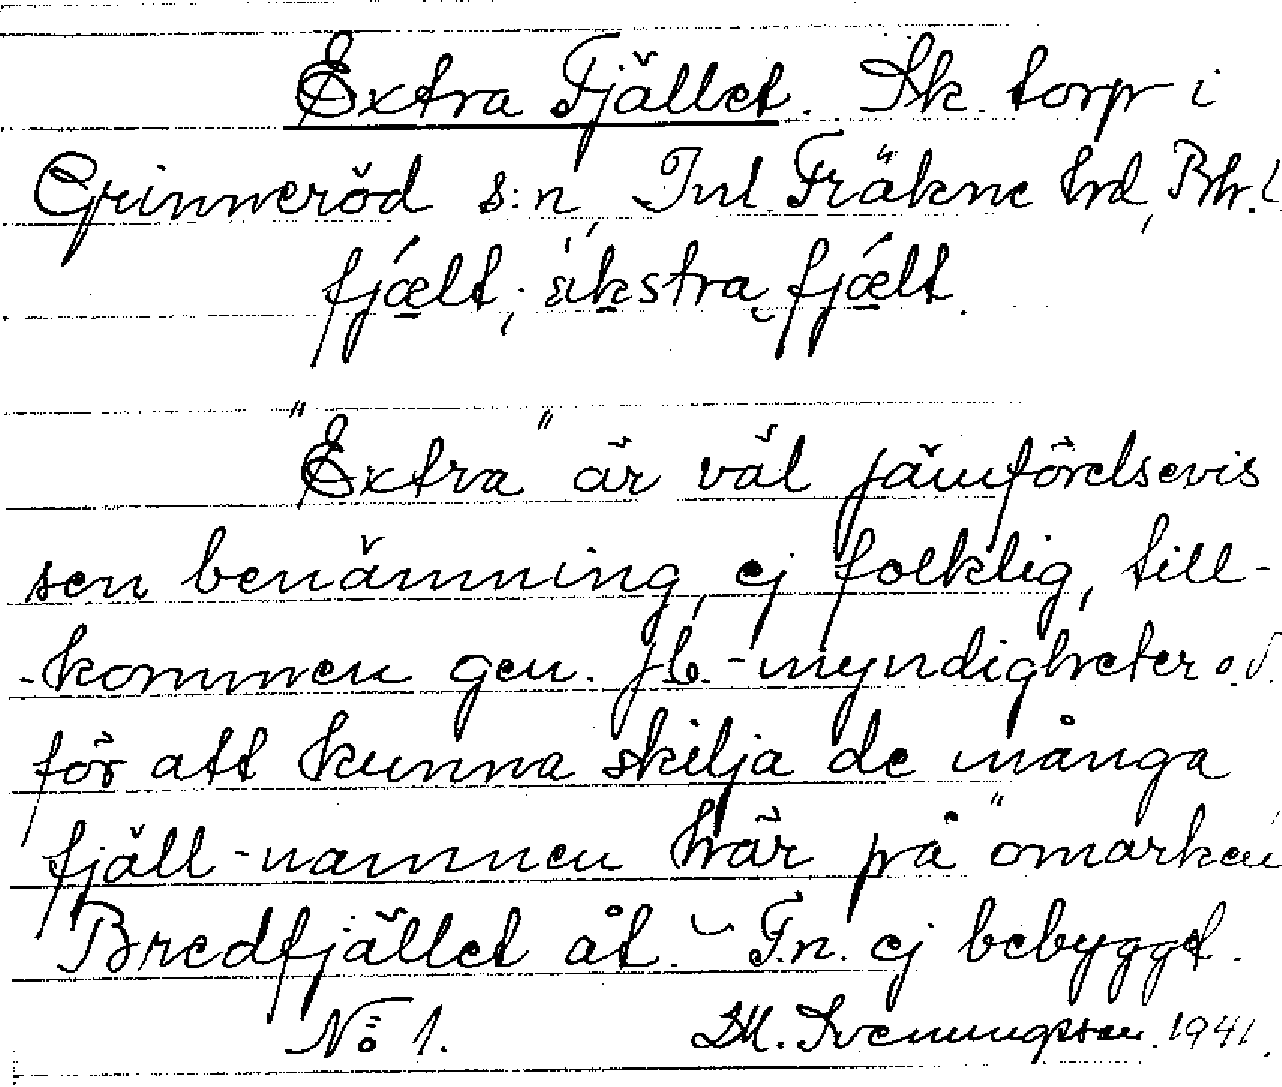 Extra Fjället. Sk. torp i
Grinneröd s:n, Inl Fräkne hd, Bhl.
fjælt; äkstra fjælt.
"Extra" är väl jämförelsevis
sen benämning, ej folklig, till-
-kommen gen. jb.-myndigheter o.d.
för att kunna skilja de många
fjäll-namnen här på "omarken"
Bredfjället åt. – F.n. ej bebyggt.
No 1. M. Svenungsson 1941.